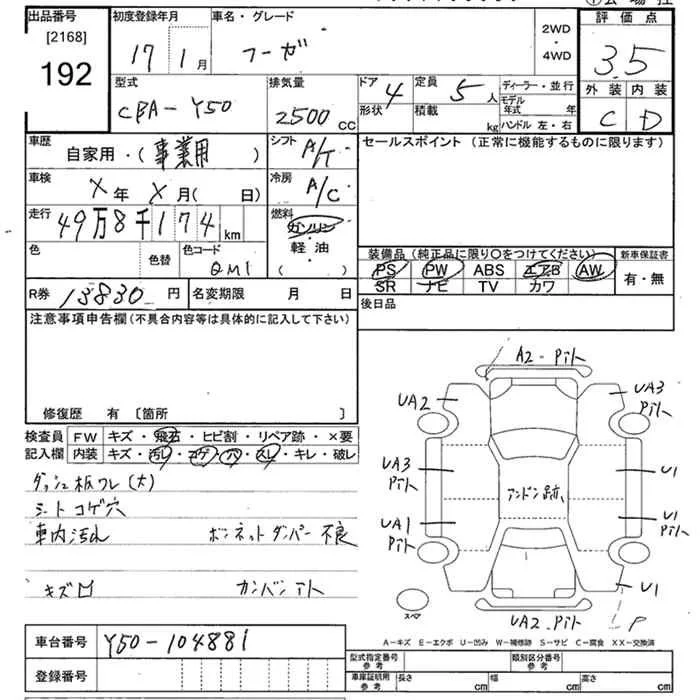 出品番号
[2168]
192
初度登録年月
17 1月
車名・グレード
フーガ
2WD
・
4WD
評価点
3.5
外装 内装
C D
型式
CBA-Y50
排気量
2500 CC
ドア 4
形状
定員 5人
積載 kg
ディーラー・並行
モデル年式 年
ハンドル 左・右
車歴
自家用・(事業用)
シフト A/T
セールスポイント (正常に機能するものに限ります)
車検
X年 X月( 日)
冷房 A/C
走行
49万8千174km
燃料
ガソリン
軽・油
( )
色 色替 色コード
QM1
装備品 (純正品に限り○をつけてください)
PS PW ABS エアB AW
SR ナビ TV カワ
新車保証書
有・無
R券 13830円
名変期限 月 日
後日品
注意事項申告欄(不具合内容等は具体的に記入して下さい)
修復歴 有 〔箇所 〕
検査員記入欄
FW キズ・飛石・ヒビ割・リペア跡・×要
内装 キズ・汚レ・コゲ・穴・スレ・キレ・破レ
ダッシュ板ワレ(大)
シートコゲ穴
車内汚れ ボンネットダンパー不良
キズ凹 カンバンアト
A2-Pit
UA2
UA3 Pit
UA3 Pit
U1
アンドン跡
UA1 Pit
U1 Pit
U1
UA2-Pit
P
スペア
A-キズ E-エクボ U-凹み W-補修跡 S-サビ C-腐食 XX-交換済
車台番号 Y50-104881
登録番号
型式指定番号 参考
類別区分番号 参考
車庫証明用 参考
長さ cm 幅 cm 高さ cm